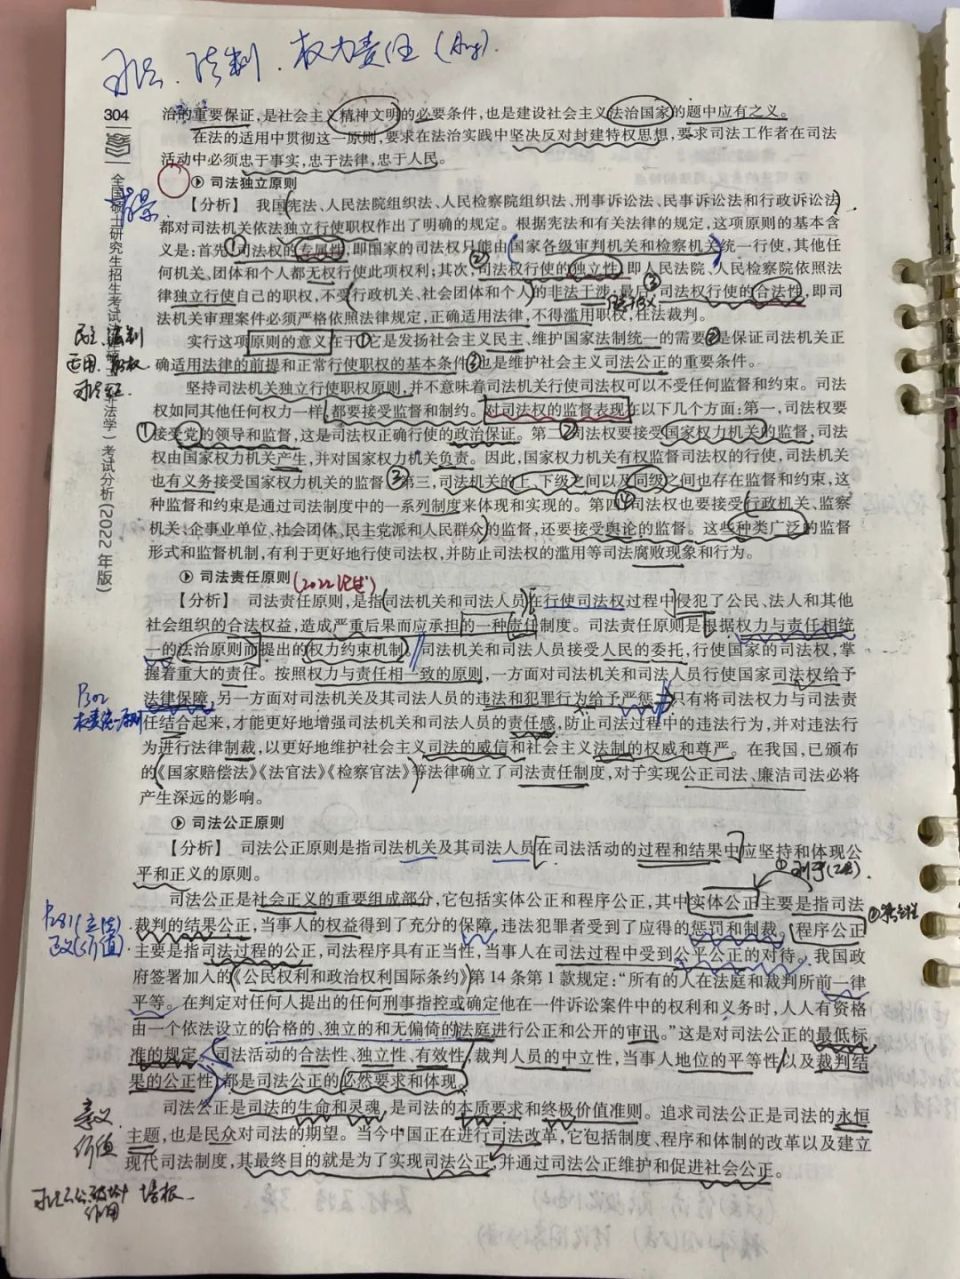 司法. 法制. 权力责任
304
治的重要保证,是社会主义精神文明的必要条件,也是建设社会主义法治国家的题中应有之义。
在法的适用中贯彻这一原则,要求在法治实践中坚决反对封建特权思想,要求司法工作者在司法
活动中必须忠于事实,忠于法律,忠于人民。
司法独立原则
【分析】 我国宪法、人民法院组织法、人民检察院组织法、刑事诉讼法、民事诉讼法和行政诉讼法
都对司法机关依法独立行使职权作出了明确的规定。根据宪法和有关法律的规定,这项原则的基本含
义是:首先,①司法权的专属性,即国家的司法权只能由国家各级审判机关和检察机关统一行使,其他任
何机关、团体和个人都无权行使此项权利;其次,②司法权行使的独立性,即人民法院、人民检察院依照法
律独立行使自己的职权,不受行政机关、社会团体和个人的非法干涉;最后,③司法权行使的合法性,即司
法机关审理案件必须严格依照法律规定,正确适用法律,不得滥用职权,枉法裁判。
实行这项原则的意义在于:①它是发扬社会主义民主、维护国家法制统一的需要;②是保证司法机关正
确适用法律的前提和正常行使职权的基本条件;③也是维护社会主义司法公正的重要条件。
民主、法制
适用、职权
坚持司法机关独立行使职权原则,并不意味着司法机关行使司法权可以不受任何监督和约束。司法
权如同其他任何权力一样,都要接受监督和制约。对司法权的监督表现在以下几个方面:第一,司法权要
①接受党的领导和监督,这是司法权正确行使的政治保证。第二,②司法权要接受国家权力机关的监督,司法
权由国家权力机关产生,并对国家权力机关负责。因此,国家权力机关有权监督司法权的行使,司法机关
也有义务接受国家权力机关的监督。③第三,司法机关的上、下级之间以及同级之间也存在监督和约束,这
种监督和约束是通过司法制度中的一系列制度来体现和实现的。第四,④司法权也要接受行政机关、监察
机关、企事业单位、社会团体、民主党派和人民群众的监督,还要接受舆论的监督。这些种类广泛的监督
形式和监督机制,有利于更好地行使司法权,并防止司法权的滥用等司法腐败现象和行为。
全国硕士研究生招生考试法律硕士(非法学)考试分析(2022年版)
司法责任原则
【分析】 司法责任原则,是指司法机关和司法人员在行使司法权过程中侵犯了公民、法人和其他
社会组织的合法权益,造成严重后果而应承担的一种责任制度。司法责任原则是根据权力与责任相统
一的法治原则而提出的权力约束机制。司法机关和司法人员接受人民的委托,行使国家的司法权,掌
握着重大的责任。按照权力与责任相一致的原则,一方面对司法机关和司法人员行使国家司法权给予
法律保障,另一方面对司法机关及其司法人员的违法和犯罪行为给予严惩。只有将司法权力与司法责
任结合起来,才能更好地增强司法机关和司法人员的责任感,防止司法过程中的违法行为,并对违法行
为进行法律制裁,以更好地维护社会主义司法的威信和社会主义法制的权威和尊严。在我国,已颁布
的《国家赔偿法》《法官法》《检察官法》等法律确立了司法责任制度,对于实现公正司法、廉洁司法必将
产生深远的影响。
P302
权责统一原则
司法公正原则
【分析】 司法公正原则是指司法机关及其司法人员在司法活动的过程和结果中应坚持和体现公
平和正义的原则。
司法公正是社会正义的重要组成部分,它包括实体公正和程序公正,其中实体公正主要是指司法
裁判的结果公正,当事人的权益得到了充分的保障,违法犯罪者受到了应得的惩罚和制裁。程序公正
主要是指司法过程的公正,司法程序具有正当性,当事人在司法过程中受到公平公正的对待。我国政
府签署加入的《公民权利和政治权利国际条约》第14条第1款规定:“所有的人在法庭和裁判所前一律
平等。在判定对任何人提出的任何刑事指控或确定他在一件诉讼案件中的权利和义务时,人人有资格
由一个依法设立的合格的、独立的和无偏倚的法庭进行公正和公开的审讯。”这是对司法公正的最低标
准的规定。司法活动的合法性、独立性、有效性,裁判人员的中立性,当事人地位的平等性,以及裁判结
果的公正性,都是司法公正的必然要求和体现。
司法公正是司法的生命和灵魂,是司法的本质要求和终极价值准则。追求司法公正是司法的永恒
主题,也是民众对司法的期望。当今中国正在进行司法改革,它包括制度、程序和体制的改革以及建立
现代司法制度,其最终目的就是为了实现司法公正,并通过司法公正维护和促进社会公正。
意义
价值